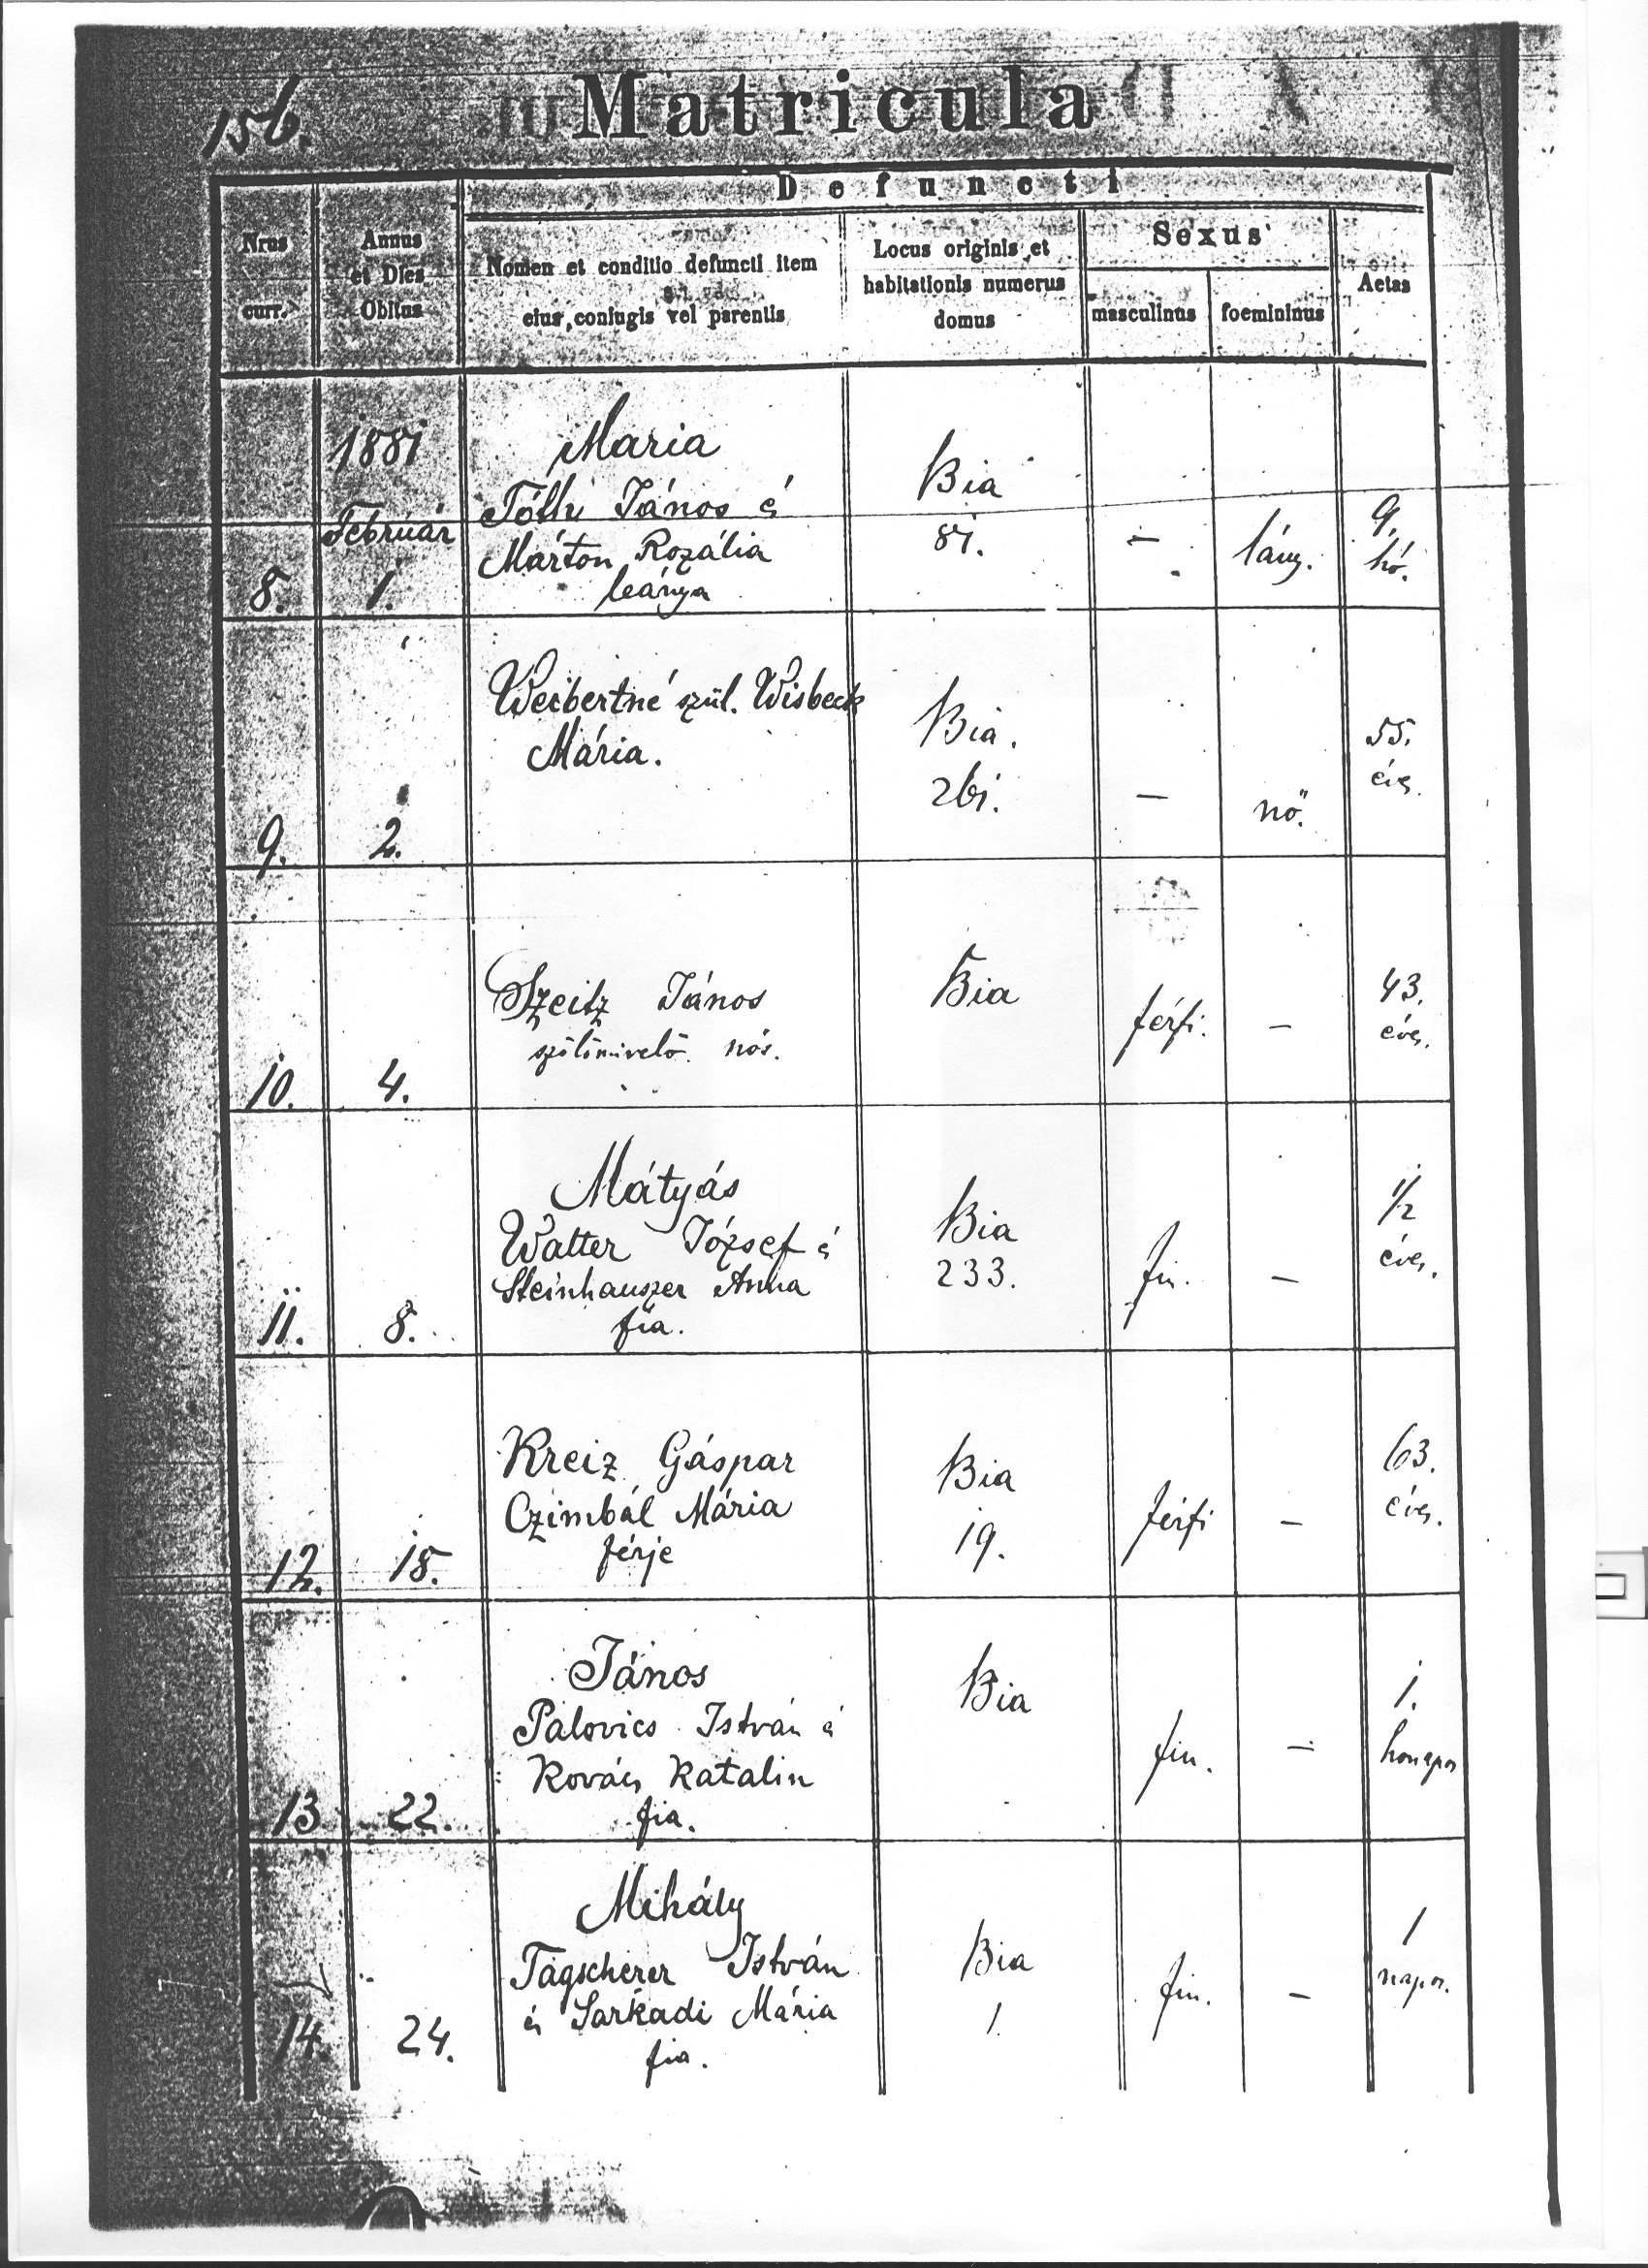 156.
Matricula
Defuncti
Nrus
curr.
Annus
et Dies
Obitus
Nomen et conditio defuncti item
eius coniugis vel parentis
Locus originis et
habitationis numerus
domus
Sexus
masculinus
foemininus
Aetas
1881
Február
8.
1.
Maria
Tóth János é
Márton Rozália
leánya
Bia
81.
–
lány.
9.
hó.
9.
2.
Weibertné szül. Wisbeck
Mária.
Bia.
261.
–
nő.
55.
éves.
10.
4.
Szeitz János
szőlőmivelő nős.
Bia
férfi.
–
43.
éves.
11.
8.
Mátyás
Walter József é
Steinhauszer Anna
fia.
Bia
233.
fiu.
–
1/2
éves.
12.
18.
Kreiz Gáspar
Czimbál Mária
férje
Bia
19.
férfi
–
63.
éves.
13
22.
János
Palovics István é
Kovács Katalin
fia.
Bia
fiu.
–
1.
honapos
14.
24.
Mihály
Tagscherer István
és Sarkadi Mária
fia.
Bia
1.
fiu.
–
1
napos.